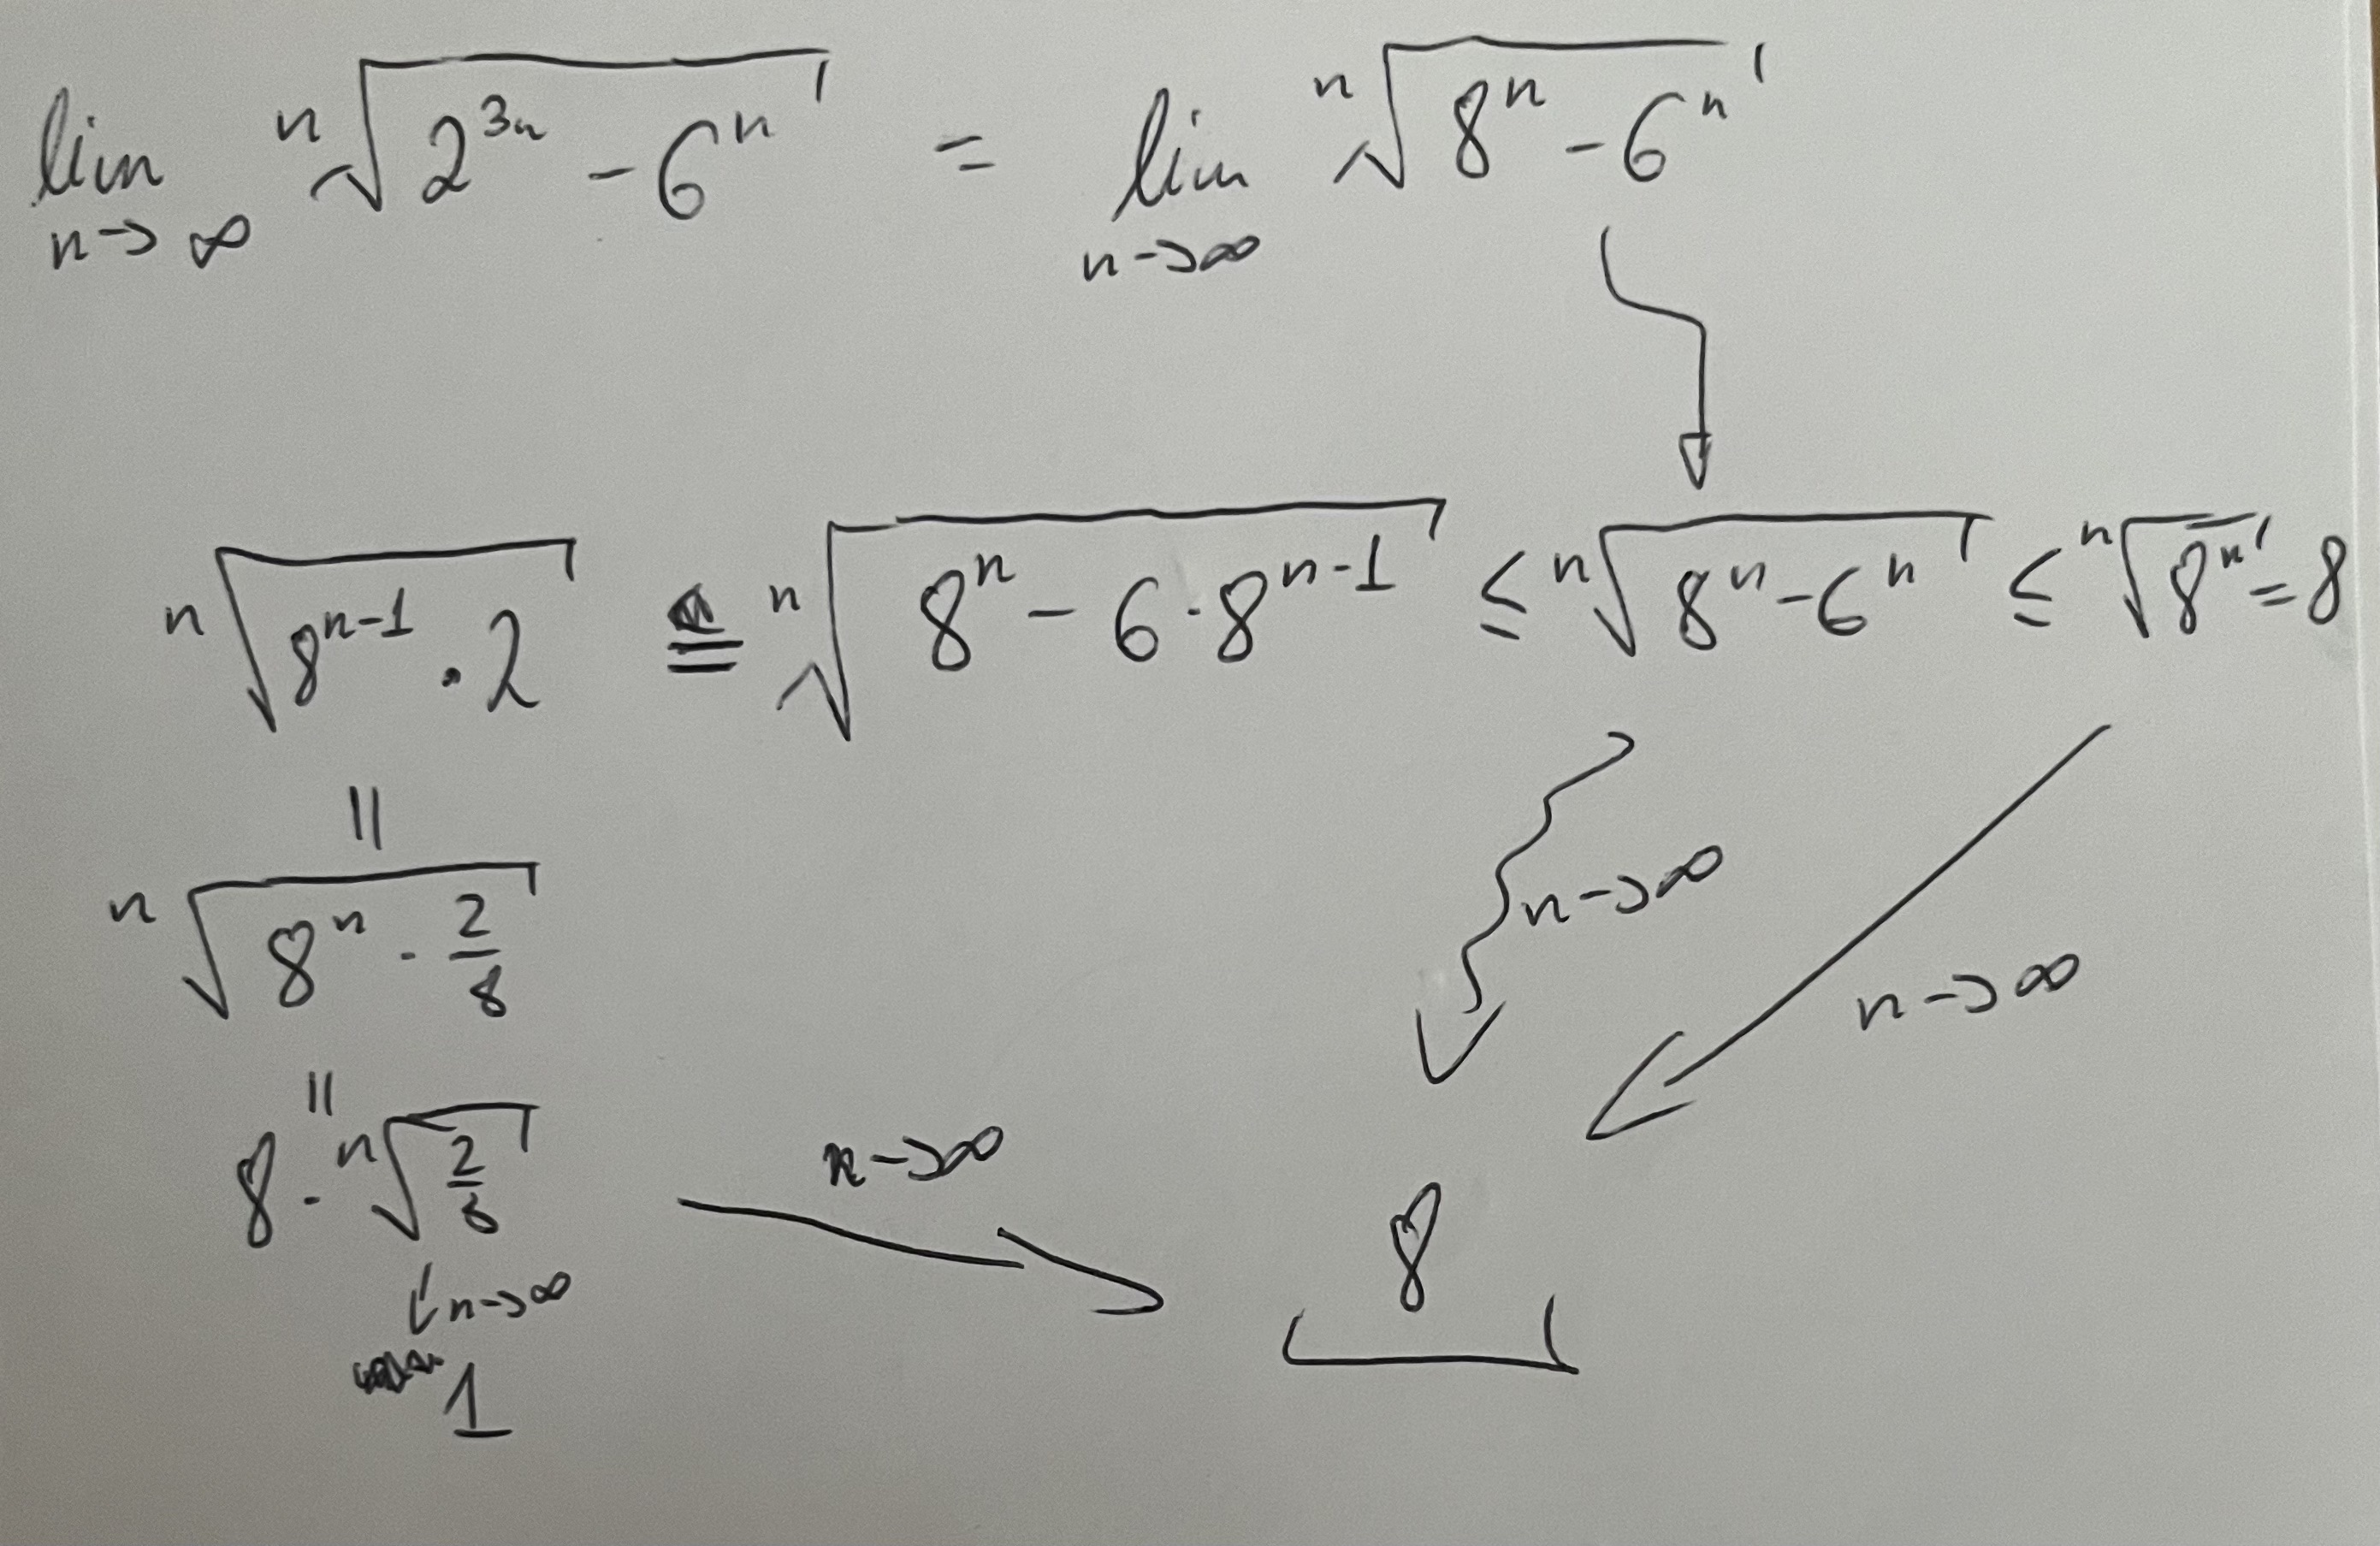 lim n→∞ ⁿ√(2³ⁿ - 6ⁿ) = lim n→∞ ⁿ√(8ⁿ - 6ⁿ)
ⁿ√(8ⁿ⁻¹ · 2) = ⁿ√(8ⁿ - 6·8ⁿ⁻¹) ≤ ⁿ√(8ⁿ - 6ⁿ) ≤ ⁿ√(8ⁿ) = 8
=
ⁿ√(8ⁿ · 2/8)
n→∞
n→∞
=
8 · ⁿ√(2/8)
n→∞
8
n→∞
1